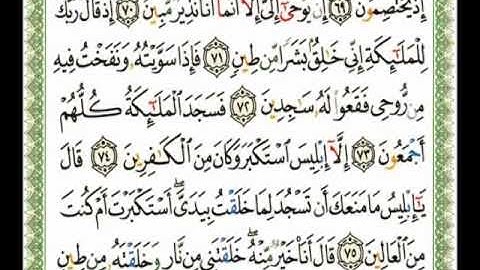 إِذْ يَخْتَصِمُونَ ﴿٦٩﴾ إِن يُوحَىٰٓ إِلَىَّ إِلَّآ أَنَّمَآ أَنَا۠ نَذِيرٌ مُّبِينٌ ﴿٧٠﴾ إِذْ قَالَ رَبُّكَ
لِلْمَلَٰٓئِكَةِ إِنِّى خَٰلِقٌۢ بَشَرًا مِّن طِينٍ ﴿٧١﴾ فَإِذَا سَوَّيْتُهُۥ وَنَفَخْتُ فِيهِ
مِن رُّوحِى فَقَعُوا۟ لَهُۥ سَٰجِدِينَ ﴿٧٢﴾ فَسَجَدَ ٱلْمَلَٰٓئِكَةُ كُلُّهُمْ
أَجْمَعُونَ ﴿٧٣﴾ إِلَّآ إِبْلِيسَ ٱسْتَكْبَرَ وَكَانَ مِنَ ٱلْكَٰفِرِينَ ﴿٧٤﴾ قَالَ
يَٰٓإِبْلِيسُ مَا مَنَعَكَ أَن تَسْجُدَ لِمَا خَلَقْتُ بِيَدَىَّ ۖ أَسْتَكْبَرْتَ أَمْ كُنتَ
مِنَ ٱلْعَالِينَ ﴿٧٥﴾ قَالَ أَنَا۠ خَيْرٌ مِّنْهُ ۖ خَلَقْتَنِى مِن نَّارٍ وَخَلَقْتَهُۥ مِن طِينٍ